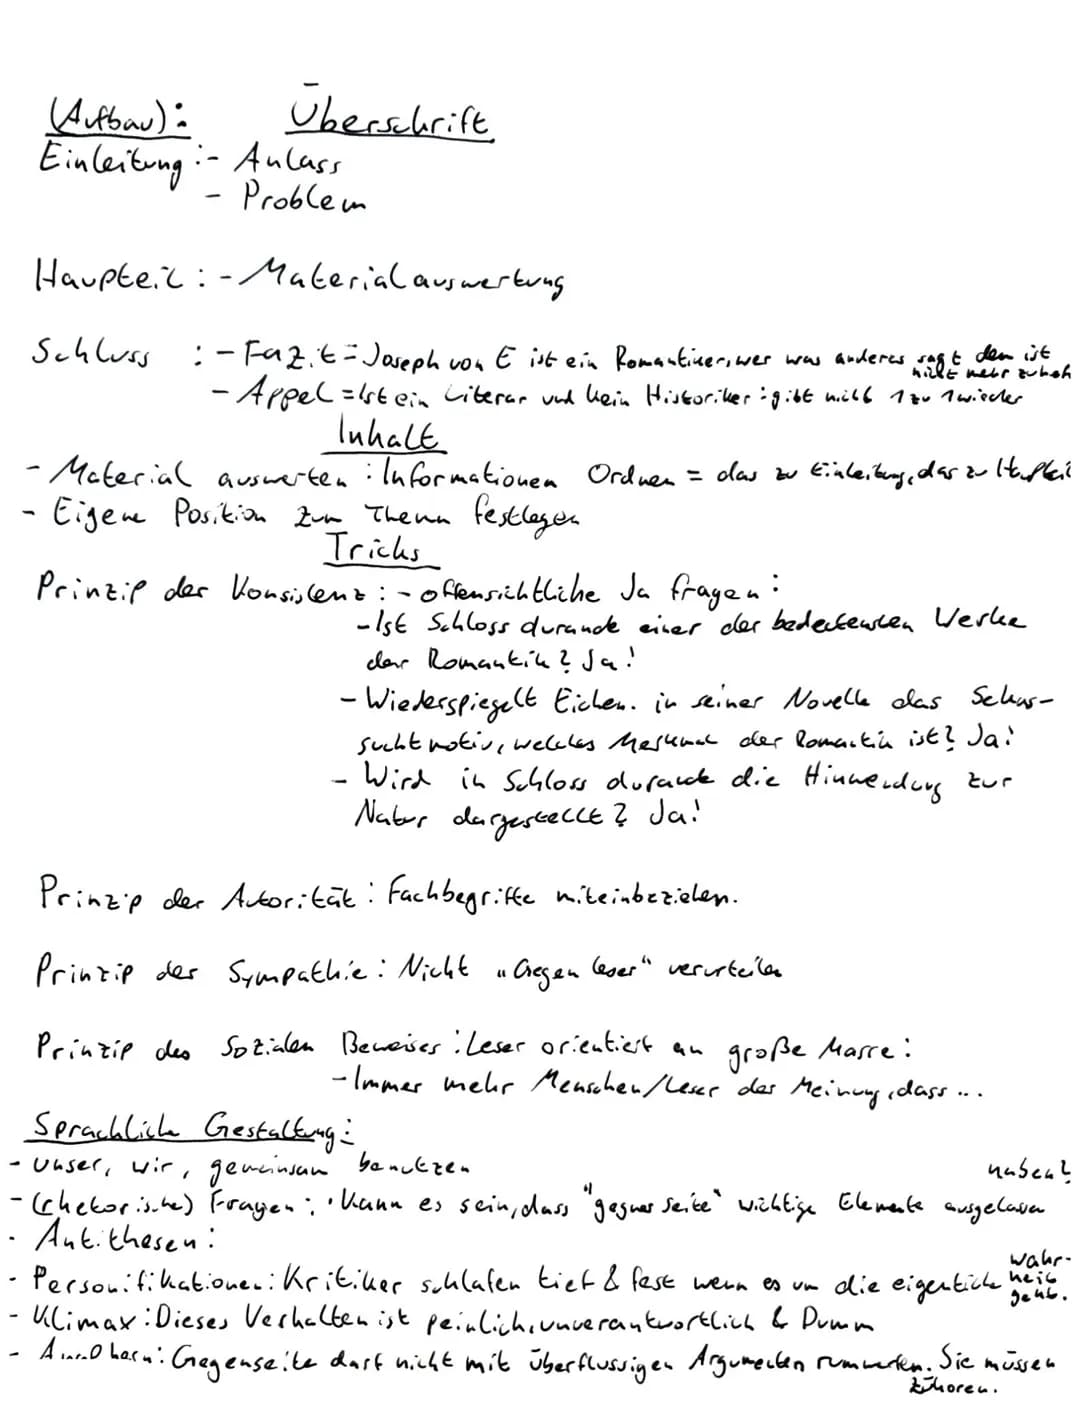 (Aufbau): Überschrift
Einleitung: - Anlass
- Problem
Haupteil: - Materialauswertung
Schluss : - Fazit = Joseph von E ist ein Romantiker, wer was anderes sagt dem ist
nicht mehr zu helf
- Appel = Ist ein Literar und kein Historiker: gibt nicht 1 zu 1 wieder
Inhalt
- Material auswerten: Informationen Ordnen = das zu Einleitung, das zu Hauptteil
- Eigene Position zum Thema festlegen
Tricks
Prinzip der Konsistenz: - offensichtliche Ja fragen:
- Ist Schloss durande einer der bedeutensten Werke
der Romantik? Ja!
- Wiederspiegelt Eichen. in seiner Novelle das Sehns-
suchtmotiv, welches Merkmal der Romantik ist? Ja!
- Wird in Schloss durande die Hinwendung zur
Natur dargestellt? Ja!
Prinzip der Autorität: Fachbegriffe miteinbeziehen.
Prinzip der Sympathie: Nicht „Gegen leser" verurteilen
Prinzip des Sozialen Beweises: Leser orientiert an große Masse:
- Immer mehr Menschen/Leser der Meinung, dass ...
Sprachliche Gestaltung:
- unser, wir, gemeinsam benutzen
haben?
- (rhetorische) Fragen: · Kann es sein, dass "gegner Seite" wichtige Elemente ausgelassen
- Antithesen:
wahr-
- Personifikationen: Kritiker schlafen tief & fest wenn es um die eigentliche heit
geht.
- Klimax: Dieses Verhalten ist peinlich, unverantwortlich & Dumm
- Gegenseite darf nicht mit überflüssigen Argumenten rumwerfen. Sie müssen
zuhören.